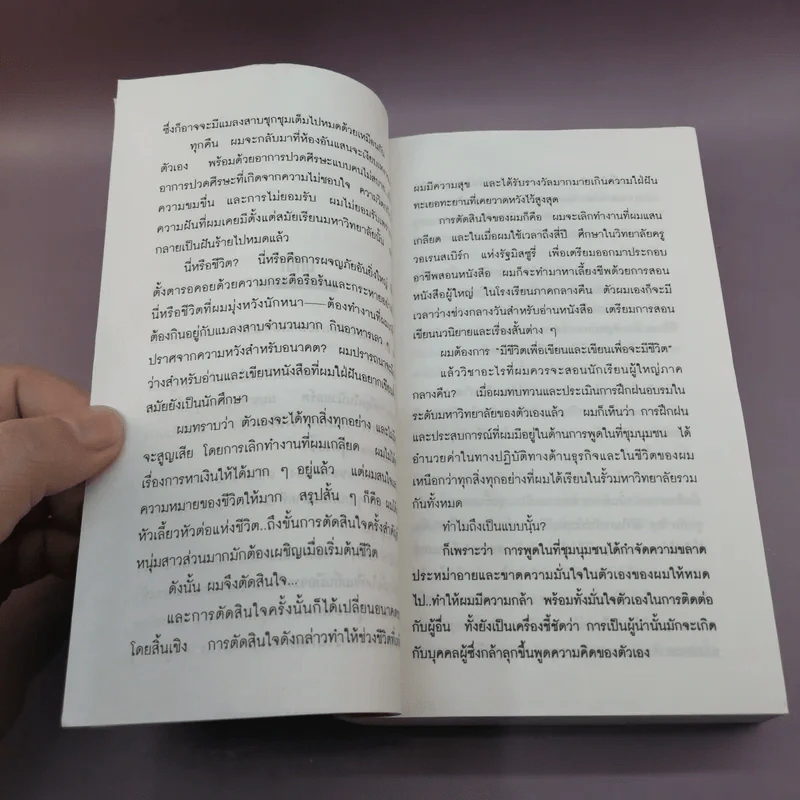 ซึ่งก็อาจจะมีแมลงสาบชุกชุมเต็มไปหมดด้วยเหมือนกัน
ทุกคืน ผมจะกลับมาที่ห้องอันแสนจะเงียบเหงา
ตัวเอง พร้อมด้วยอาการปวดศีรษะแบบคนไม่สบาย
อาการปวดศีรษะที่เกิดจากความไม่ชอบใจ ความวิตก
ความขมขื่น และการไม่ยอมรับ ผมไม่ยอมรับเพราะ
ความฝันที่ผมเคยมีตั้งแต่สมัยเรียนมหาวิทยาลัยนั้น
กลายเป็นฝันร้ายไปหมดแล้ว
นี่หรือชีวิต? นี่หรือคือการผจญภัยอันยิ่งใหญ่
ตั้งตารอคอยด้วยความกระตือรือร้นและกระหาย
นี่หรือชีวิตที่ผมมุ่งหวังนักหนา——ต้องทำงานที่ผม
ต้องกินอยู่กับแมลงสาบจำนวนมาก กินอาหารเลว ๆ
ปราศจากความหวังสำหรับอนาคต? ผมปรารถนา
ว่างสำหรับอ่านและเขียนหนังสือที่ผมใฝ่ฝันอยากเขียน
สมัยยังเป็นนักศึกษา
ผมทราบว่า ตัวเองจะได้ทุกสิ่งทุกอย่าง และไม่มี
จะสูญเสีย โดยการเลิกทำงานที่ผมเกลียด ผมไม่
เรื่องการหาเงินให้ได้มาก ๆ อยู่แล้ว แต่ผมสนใจ
ความหมายของชีวิตให้มาก สรุปสั้น ๆ ก็คือ ผม
หัวเลี้ยวหัวต่อแห่งชีวิต..ถึงขั้นการตัดสินใจครั้งสำคัญ
หนุ่มสาวส่วนมากมักต้องเผชิญเมื่อเริ่มต้นชีวิต
ดังนั้น ผมจึงตัดสินใจ...
และการตัดสินใจครั้งนั้นก็ได้เปลี่ยนอนาคต
โดยสิ้นเชิง การตัดสินใจดังกล่าวทำให้ช่วงชีวิต
ผมมีความสุข และได้รับรางวัลมากมายเกินความใฝ่ฝัน
ทะเยอทะยานที่เคยวาดหวังไว้สูงสุด
การตัดสินใจของผมก็คือ ผมจะเลิกทำงานที่ผมแสน
เกลียด และในเมื่อผมใช้เวลาถึงสี่ปี ศึกษาในวิทยาลัยครู
วอเรนสเบิร์ก แห่งรัฐมิสซูรี่ เพื่อเตรียมออกมาประกอบ
อาชีพสอนหนังสือ ผมก็จะทำมาหาเลี้ยงชีพด้วยการสอน
หนังสือผู้ใหญ่ ในโรงเรียนภาคกลางคืน ตัวผมเองก็จะมี
เวลาว่างช่วงกลางวันสำหรับอ่านหนังสือ เตรียมการสอน
เขียนนวนิยายและเรื่องสั้นต่าง ๆ
ผมต้องการ “มีชีวิตเพื่อเขียนและเขียนเพื่อจะมีชีวิต”
แล้ววิชาอะไรที่ผมควรจะสอนนักเรียนผู้ใหญ่ภาค
กลางคืน? เมื่อผมทบทวนและประเมินการฝึกฝนอบรมใน
ระดับมหาวิทยาลัยของตัวเองแล้ว ผมก็เห็นว่า การฝึกฝน
และประสบการณ์ที่ผมมีอยู่ในด้านการพูดในที่ชุมนุมชน ได้
อำนวยค่าในทางปฏิบัติทางด้านธุรกิจและในชีวิตของผม
เหนือกว่าทุกสิ่งทุกอย่างที่ผมได้เรียนในรั้วมหาวิทยาลัยรวม
กันทั้งหมด
ทำไมถึงเป็นแบบนั้น?
ก็เพราะว่า การพูดในที่ชุมนุมชนได้กำจัดความขลาด
ประหม่าอายและขาดความมั่นใจในตัวเองของผมให้หมด
ไป..ทำให้ผมมีความกล้า พร้อมทั้งมั่นใจตัวเองในการติดต่อ
กับผู้อื่น ทั้งยังเป็นเครื่องชี้ชัดว่า การเป็นผู้นำนั้นมักจะเกิด
กับบุคคลผู้ซึ่งกล้าลุกขึ้นพูดความคิดของตัวเอง